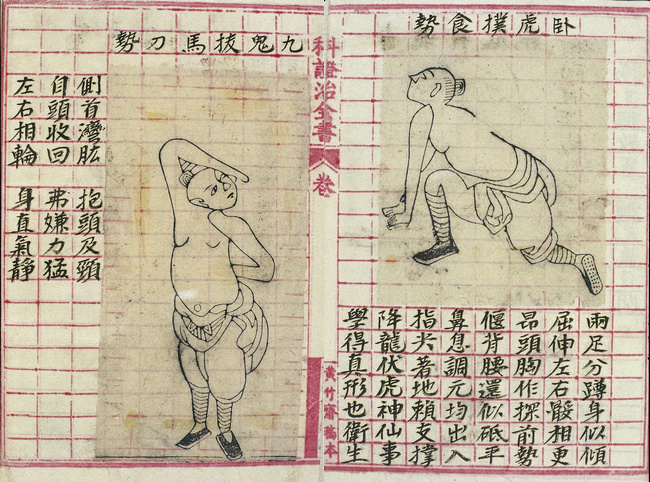 卧虎撲食勢
兩足分蹲身似傾
屈伸左右骽相更
昂頭胸作探前勢
偃背腰還似砥平
鼻息調元均出入
指尖著地賴支撐
降龍伏虎神仙事
學得真形也衛生
科證治全書
卷
黄竹齋稿本
九鬼拔馬刀勢
側首灣肱 抱頭及頸
自頭收回 弗嫌力猛
左右相輪 身直氣靜